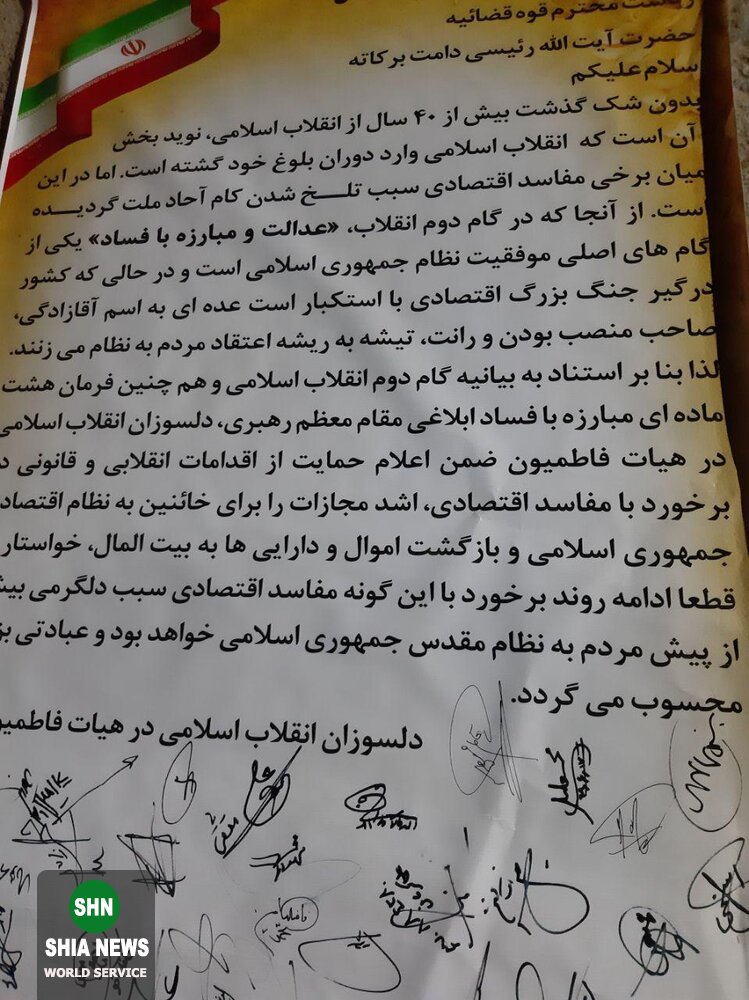 ریاست محترم قوه قضائیه
حضرت آیت الله رئیسی دامت برکاته
سلام علیکم
بدون شک گذشت بیش از ۴۰ سال از انقلاب اسلامی، نوید بخش
آن است که انقلاب اسلامی وارد دوران بلوغ خود گشته است. اما در این
میان برخی مفاسد اقتصادی سبب تلخ شدن کام آحاد ملت گردیده
است. از آنجا که در گام دوم انقلاب، «عدالت و مبارزه با فساد» یکی از
گام های اصلی موفقیت نظام جمهوری اسلامی است و در حالی که کشور
درگیر جنگ بزرگ اقتصادی با استکبار است عده ای به اسم آقازادگی،
صاحب منصب بودن و رانت، تیشه به ریشه اعتقاد مردم به نظام می زنند.
لذا بنا بر استناد به بیانیه گام دوم انقلاب اسلامی و هم چنین فرمان هشت
ماده ای مبارزه با فساد ابلاغی مقام معظم رهبری، دلسوزان انقلاب اسلامی
در هیات فاطمیون ضمن اعلام حمایت از اقدامات انقلابی و قانونی
برخورد با مفاسد اقتصادی، اشد مجازات را برای خائنین به نظام اقتصاد
جمهوری اسلامی و بازگشت اموال و دارایی ها به بیت المال، خواستار
قطعا ادامه روند برخورد با این گونه مفاسد اقتصادی سبب دلگرمی بیش
از پیش مردم به نظام مقدس جمهوری اسلامی خواهد بود و عبادتی
محسوب می گردد.
دلسوزان انقلاب اسلامی در هیات فاطمیون
SHN
SHIA NEWS
WORLD SERVICE